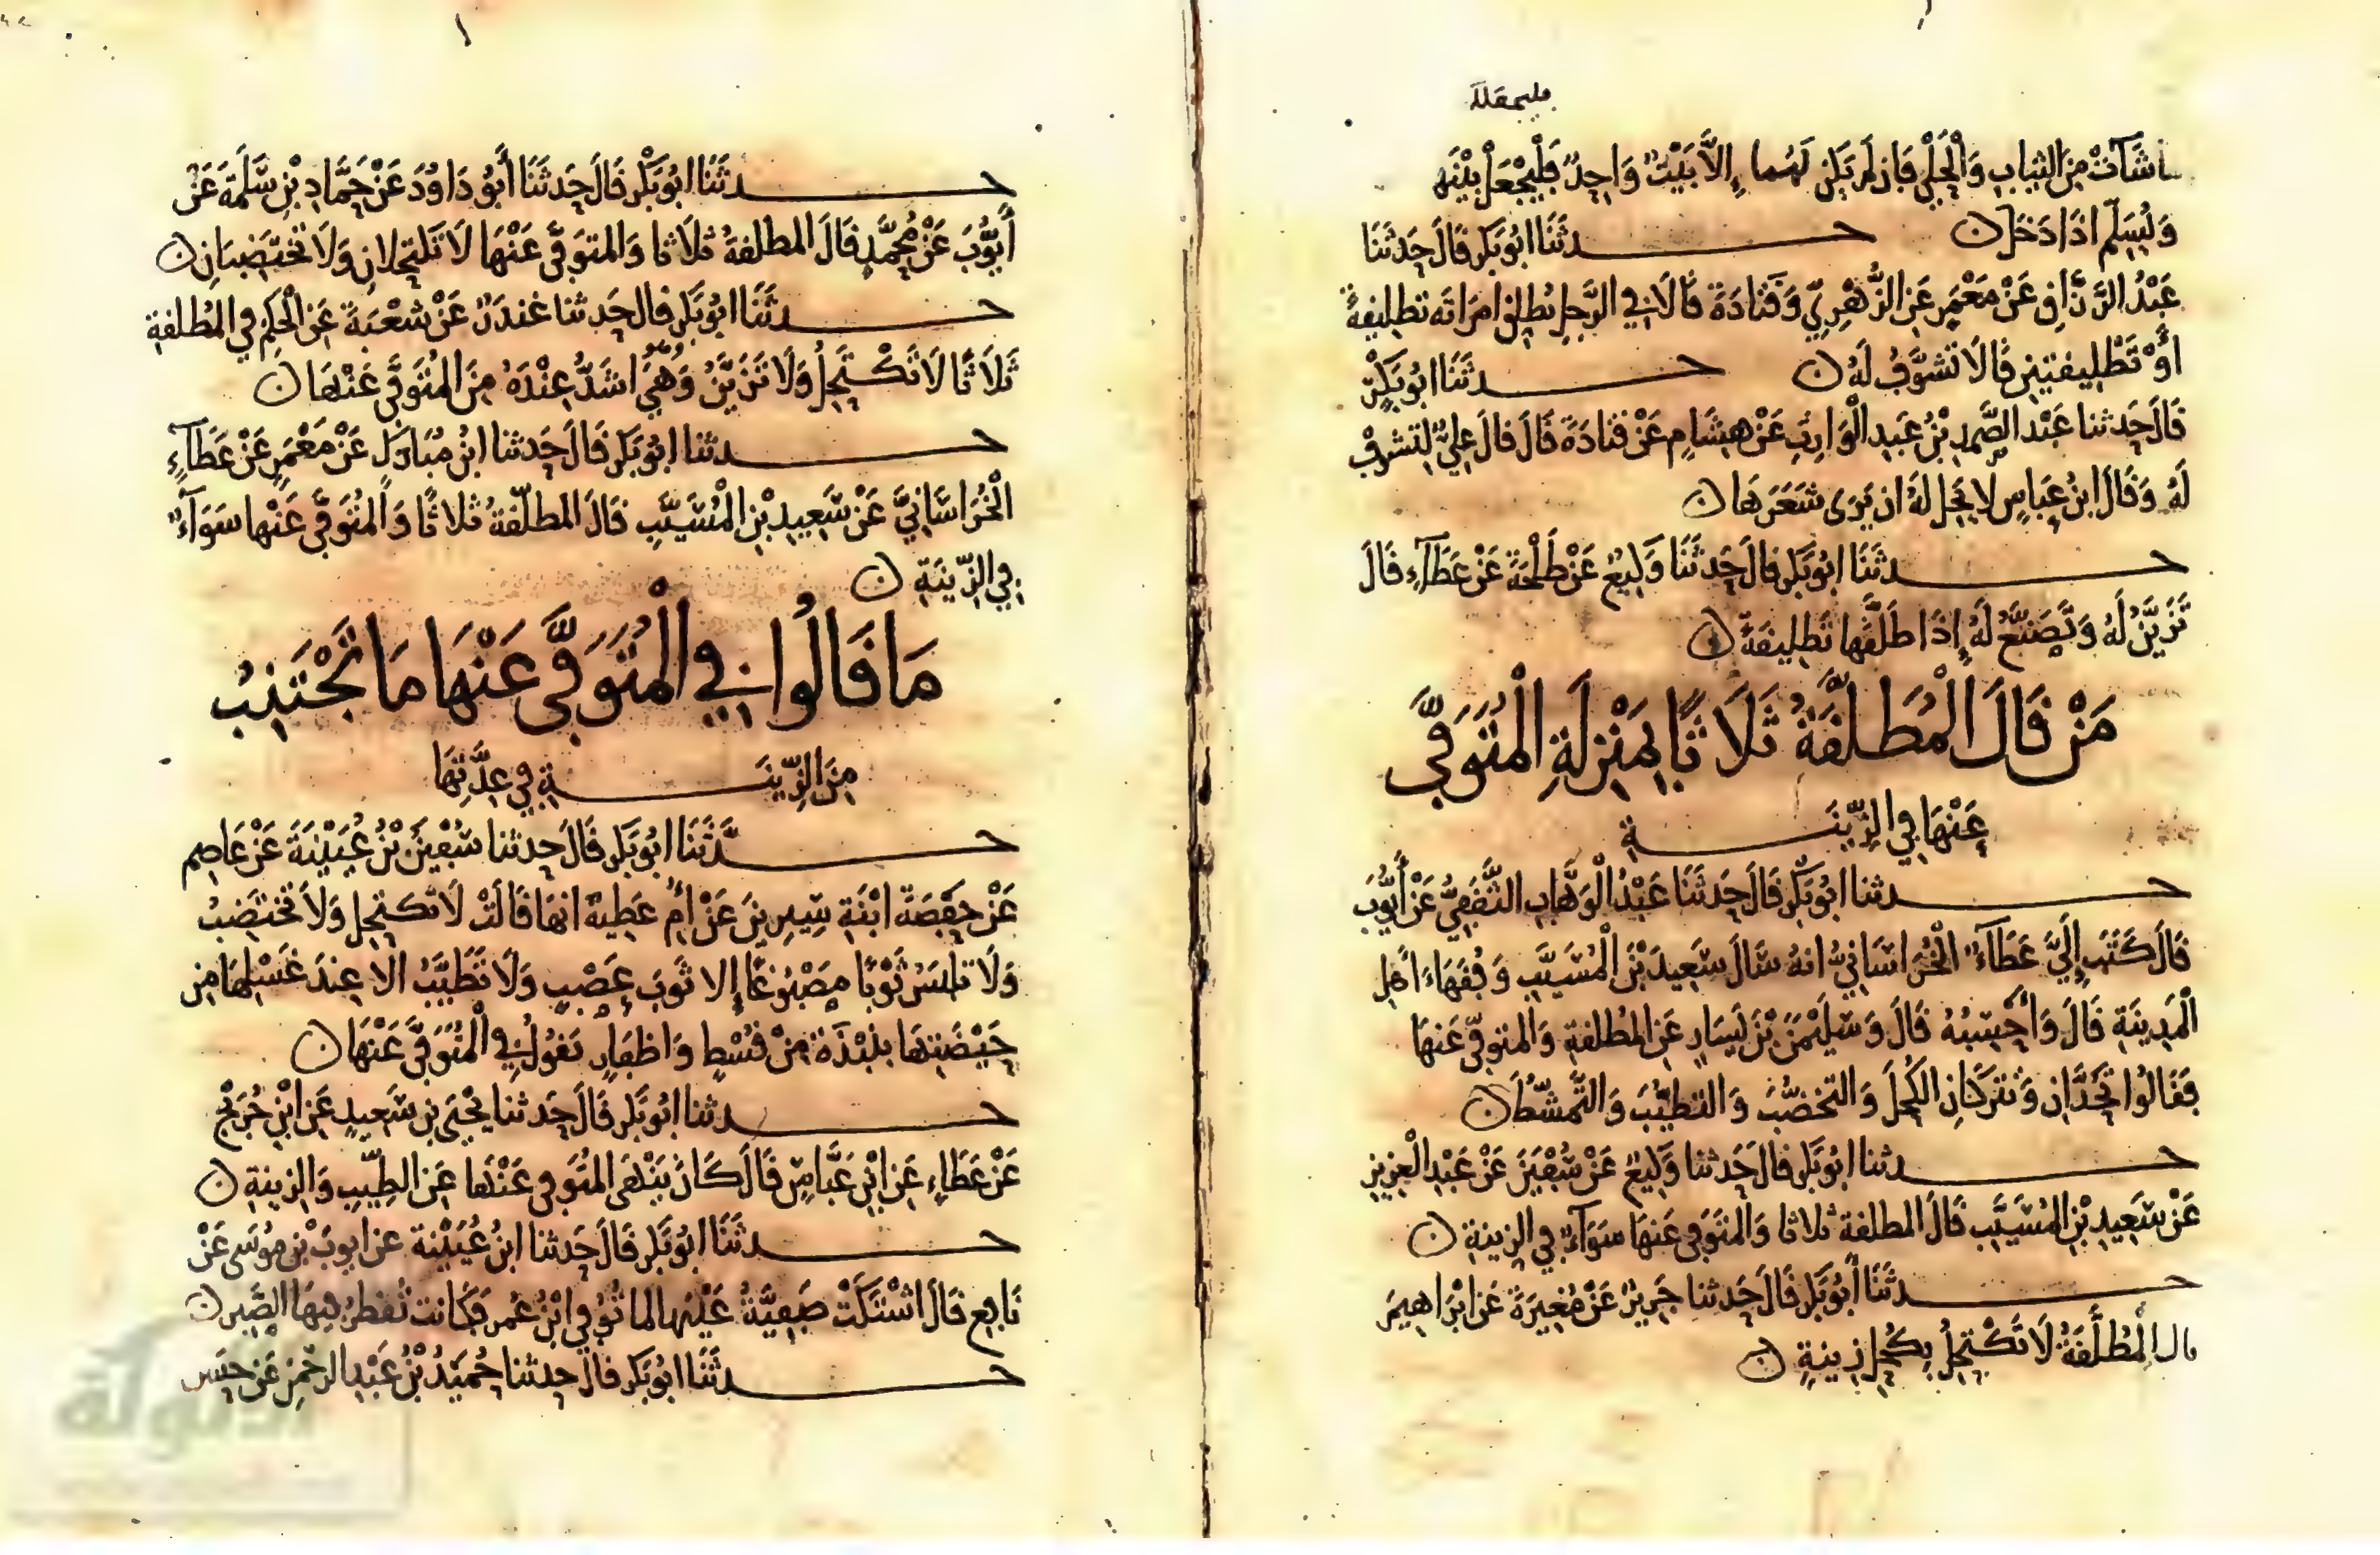 شَآتْ مِنَ الثياب وَالْحُلْيِ فَان لَم يَكن لَهُما إِلاَّ بَيْتٌ وَاحِدٌ فَلْيَجْعَلْ بَيْنَه
وَلْيُسَلِّم اذَا دَخَلَ ن حدثَنَا ابُو بَكر قَالَ حَدثَنَا
عَبْدُ الرَّزَّاقِ عَنْ مَعْمَرٍ عَنِ الزُّهْرِيِّ وَقَتَادَةَ قَالَا فِي الرَّجلِ يُطلِق امرَاتَه تَطلِيقةً
اوْ تَطْلِيقتينِ قَالَا تَشَوَّفُ لَهُ ن حدثَنَا ابُو بَكْرٍ
قَالَ حَدثنا عَبْد الصَّمدِ بْنُ عَبدِ الْوَارِثِ عَنْ هِشَامٍ عَنْ قتادَةَ قَالَ قالَ عَلِيٌّ لِتَشوفْ
لَهُ وَقَالَ ابنُ عبَاسٍ لا يَحِل لَهُ ان يَرَى شَعَرَهَا ن
حدثَنَا ابُو بَكر قالَ حَدثَنَا وَكِيعٌ عَنْ طَلْحَةَ عَنْ عَطَآءٍ قَالَ
تَزَيَّنُ لَهُ وَتَصَنَّعُ لَهُ إِذَا طَلَّقَها تَطلِيقَةً ن
مَنْ قَالَ الْمُطَلَّقَةُ ثَلَاثًا بِمَنْزِلَةِ الْمُتَوَفَّى
عَنْهَا فِي الزِّينَـــة
حدثنا ابُو بَكْرٍ قَالَ حَدثَنَا عَبْدُ الْوَهَّابِ الثَّقَفِيُّ عَنْ أَيُّوبَ
قَالَ كَتَبَ إِلَيَّ عَطَآءٌ الْخُرَاسَانِيُّ انهُ سَالَ سَعِيدَ بْنَ الْمُسَيَّبِ وَفُقَهَاءَ أهلِ
الْمَدِينَةِ قَالَ وَأَحْسِبُهُ قَالَ وَسُلَيْمٰنَ بْنَ يَسَارٍ عَنِ المُطَلقةِ وَالمتوفّى عَنهَا
فَقَالُوا تَحِدَّانِ وَتَتركَانِ الكُحلَ وَالتخضُّبَ وَالتطيّبَ وَالتَّمشّطَ ن
حدثنا ابُو بَكر قالَ حَدثنا وَكِيعٌ عَنْ سُفْيٰنَ عَنْ عَبْدِ الْعزِيزِ
عَنْ سَعِيدِ بْنِ المُسَيَّبِ قَالَ المطلقة ثلاثا وَالمتَوَفى عَنهَا سَوَآءٌ فِي الزِينةِ ن
حدثَنَا أبُو بَكر قَالَ حَدثنا جَرِيرٌ عَنْ مُغِيرَةَ عَنِ ابْرَاهِيمَ
قال الْمُطَلَّقَةُ لَا تَكْتَحِلُ بِكُحلِ زِينةٍ ن
حدثَنَا ابُو بَكْر قَالَ حَدثَنَا أَبُو دَاوُدَ عَنْ حَمَّادِ بْنِ سَلَمَةَ عَنْ
أَيُّوبَ عَنْ مُحَمَّدٍ قَالَ المطلقةُ ثلَاثا وَالمتوَفَّى عَنْهَا لَا تَكتحِلانِ وَلَا تَختَضِبَانِ ن
حدثَنَا ابُو بَكر قالَ حَدثنا غندَرٌ عَنْ شعْبَةَ عَنِ الْحَكَمِ فِي المُطَلقةِ
ثَلَاثًا لَا تَكْتَحِلُ وَلَا تَزَيَّنُ وَهْيَ اشَدُّ عِنْدَهُ مِنَ المُتَوَفَّى عَنْهَا ن
حدثنا ابُو بَكر قَالَ حَدثنا ابنُ مُبَارَكٍ عَنْ مَعْمَرٍ عَنْ عَطَآءٍ
الْخُرَاسَانِيِّ عَنْ سَعِيدِ بْنِ الْمُسَيَّبِ قَالَ المطلّقةُ ثلاثًا وَالمُتَوَفَّى عَنْها سَوَآءٌ
فِي الزِّينَةِ ن
مَا قَالُوا فِي الْمُتَوَفَّى عَنْهَا مَا تَجْتَنِبُ
مِنَ الزِّينَـــةِ فِي عِدَّتِهَا
حدَّثَنَا ابُو بَكر قَالَ حدثنا سُفْيٰنُ بْنُ عُيَيْنَةَ عَنْ عَاصِمٍ
عَنْ حَفْصَةَ ابْنَةِ سِيرِينَ عَنْ امِّ عَطِيةَ انهَا قَالَتْ لَا تكتحِل وَلَا تَختَضِبُ
وَلَا تلبَسُ ثَوْبًا مَصْبُوغًا إلا ثَوبَ عَصْبٍ وَلَا تَطَيَّبُ الا عِندَ غسْلِهَا مِن
حَيْضَتِهَا بنُبْذَةٍ مِنْ قُسْطٍ وَاظفَارٍ تَقولُ فِي الْمُتوَفَّى عَنْهَا ن
حدثنا ابُو بَكر قَالَ حَدثنا يَحْيَى بن سَعِيدٍ عَنِ ابْنِ جُرَيْجٍ
عَنْ عَطَاءٍ عَنِ ابْنِ عَبَّاسٍ قَالَ كَانَ يَنْهَى المُتَوَفى عَنْهَا عَنِ الطِّيبِ وَالزِينةِ ن
حدثَنَا ابُو بَكر قَالَ حَدثنا ابنُ عُيَيْنة عَنْ ايوبَ بْنِ مُوسَى عَنْ
نَافِعٍ قَالَ اشْتَكَتْ صَفِيَّةُ عَيْنَها لما تُوُفي ابْنُ عُمرَ فكَانت تُقطِرُ فِيهَا الصَّبِر ن
حدثَنَا ابُو بَكر قالَ حدثنا حُمَيْدُ بْنُ عَبْدِ الرحْمٰنِ عَنْ حَسَن